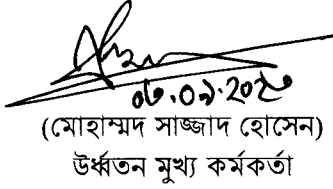 ০৩.০৯.২০২৫
(মোহাম্মদ সাজ্জাদ হোসেন)
উর্ধ্বতন মুখ্য কর্মকর্তা